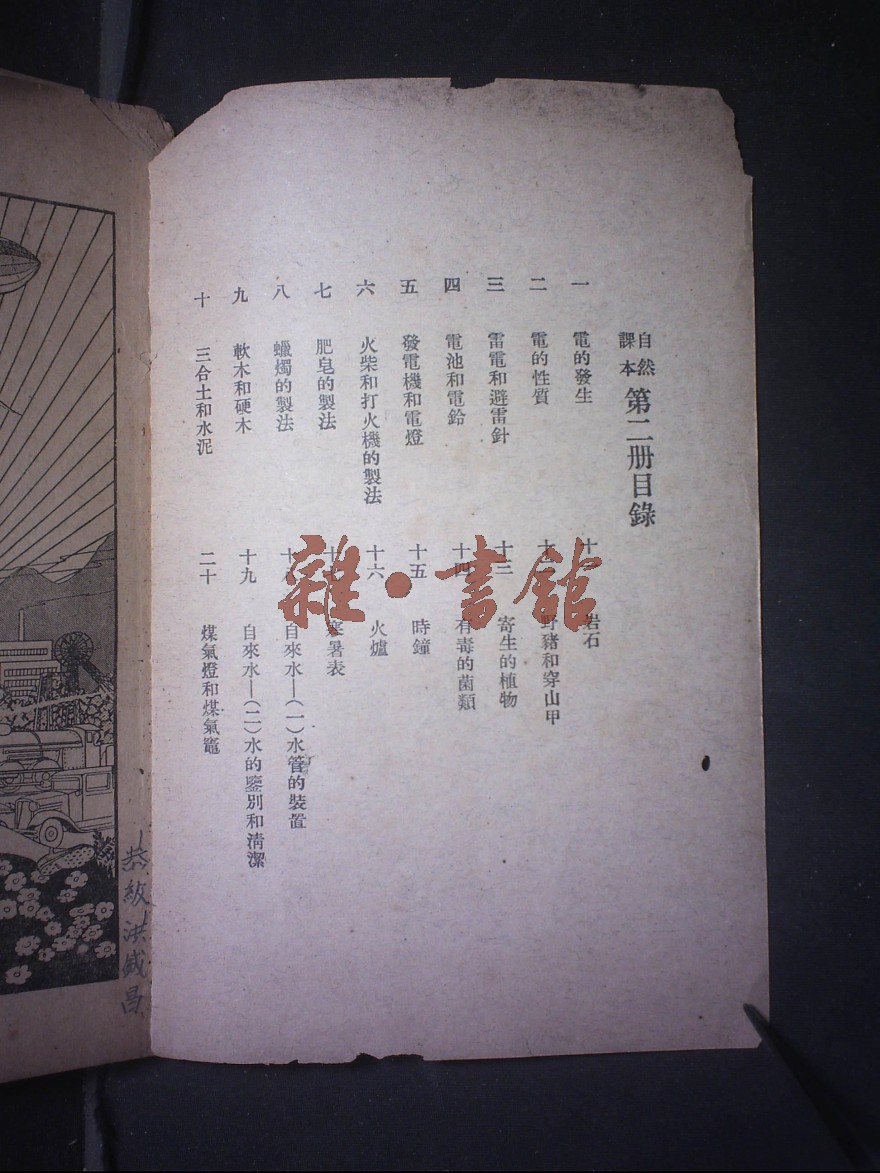 自然課本 第二册目錄
一 電的發生
二 電的性質
三 雷電和避雷針
四 電池和電鈴
五 發電機和電燈
六 火柴和打火機的製法
七 肥皂的製法
八 蠟燭的製法
九 軟木和硬木
十 三合土和水泥
十一 岩石
十二 野豬和穿山甲
十三 寄生的植物
十四 有毒的菌類
十五 時鐘
十六 火爐
十七 寒暑表
十八 自來水—(一)水管的裝置
十九 自來水—(二)水的鑒別和淸潔
二十 煤氣燈和煤氣竈
雜·書館
級洪盛昌